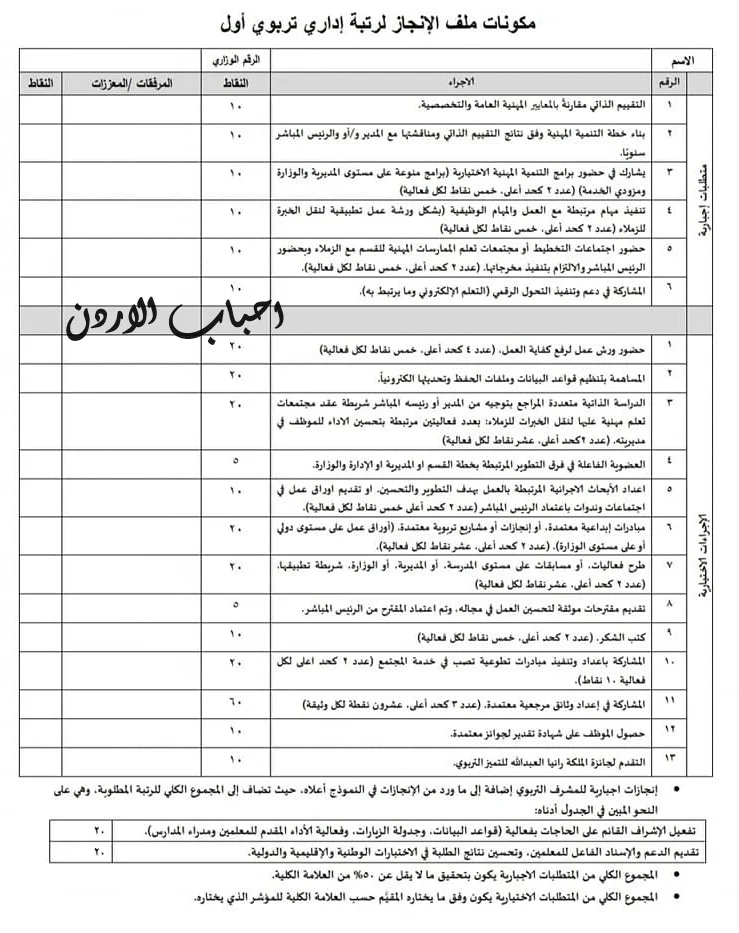 مكونات ملف الإنجاز لرتبة إداري تربوي أول
الاسم
الرقم الوزاري
الرقم
الاجراء
النقاط
المرفقات /المعززات
النقاط
متطلبات إجبارية
١
التقييم الذاتي مقارنةً بالمعايير المهنية العامة والتخصصية.
١٠
٢
بناء خطة التنمية المهنية وفق نتائج التقييم الذاتي ومناقشتها مع المدير و/أو والرئيس المباشر
سنويًا.
١٠
٣
يشارك في حضور برامج التنمية المهنية الاختيارية (برامج منوعة على مستوى المديرية والوزارة
ومزودي الخدمة) (عدد ٢ كحد أعلى، خمس نقاط لكل فعالية)
١٠
٤
تنفيذ مهام مرتبطة مع العمل والمهام الوظيفية (بشكل ورشة عمل تطبيقية لنقل الخبرة
للزملاء (عدد ٢ كحد أعلى، خمس نقاط لكل فعالية)
١٠
٥
حضور اجتماعات التخطيط أو مجتمعات تعلم الممارسات المهنية للقسم مع الزملاء وبحضور
الرئيس المباشر والالتزام بتنفيذ مخرجاتها. (عدد ٢ كحد أعلى، خمس نقاط لكل فعالية).
١٠
٦
المشاركة في دعم وتنفيذ التحول الرقمي (التعلم الإلكتروني وما يرتبط به).
١٠
احباب الاردن
الإجراءات الاختيارية
١
حضور ورش عمل لرفع كفاية العمل، (عدد ٤ كحد أعلى، خمس نقاط لكل فعالية)
٢٠
٢
المساهمة بتنظيم قواعد البيانات وملفات الحفظ وتحديثها الكترونياً.
٢٠
٣
الدراسة الذاتية متعددة المراجع بتوجيه من المدير أو رئيسه المباشر شريطة عقد مجتمعات
تعلم مهنية عليها لنقل الخبرات للزملاء: بعدد فعاليتين مرتبطة بتحسين الاداء للموظف في
مديريته. (عدد ٢كحد أعلى، عشر نقاط لكل فعالية)
٢٠
٤
العضوية الفاعلة في فرق التطوير المرتبطة بخطة القسم او المديرية او الإدارة والوزارة.
٥
٥
اعداد الأبحاث الاجرائية المرتبطة بالعمل بهدف التطوير والتحسين، او تقديم اوراق عمل في
اجتماعات وندوات باعتماد الرئيس المباشر (عدد ٢ كحد أعلى خمس نقاط لكل فعالية)
١٠
٦
مبادرات إبداعية معتمدة، أو إنجازات أو مشاريع تربوية معتمدة، (أوراق عمل على مستوى دولي
أو على مستوى الوزارة). (عدد ٢ كحد أعلى، عشر نقاط لكل فعالية).
٢٠
٧
طرح فعاليات، أو مسابقات على مستوى المدرسة، أو المديرية، أو الوزارة، شريطة تطبيقها.
(عدد ٢ كحد أعلى، عشر نقاط لكل فعالية)
٢٠
٨
تقديم مقترحات موثقة لتحسين العمل في مجاله، وتم اعتماد المقترح من الرئيس المباشر.
٥
٩
كتب الشكر، (عدد ٢ كحد أعلى، خمس نقاط لكل فعالية)
١٠
١٠
المشاركة باعداد وتنفيذ مبادرات تطوعية تصب في خدمة المجتمع (عدد ٢ كحد اعلى لكل
فعالية ١٠ نقاط).
٢٠
١١
المشاركة في إعداد وثائق مرجعية معتمدة، (عدد ٣ كحد أعلى، عشرون نقطة لكل وثيقة)
٦٠
١٢
حصول الموظف على شهادة تقدير لجوائز معتمدة.
١٠
١٣
التقدم لجائزة الملكة رانيا العبدالله للتميز التربوي.
١٠
• إنجازات اجبارية للمشرف التربوي إضافة إلى ما ورد من الإنجازات في النموذج أعلاه، حيث تضاف إلى المجموع الكلي للرتبة المطلوبة، وهي على
النحو المبين في الجدول أدناه:
تفعيل الإشراف القائم على الحاجات بفعالية (قواعد البيانات، وجدولة الزيارات، وفعالية الأداء المقدم للمعلمين ومدراء المدارس).
٢٠
تقديم الدعم والإسناد الفاعل للمعلمين، وتحسين نتائج الطلبة في الاختبارات الوطنية والإقليمية والدولية.
٢٠
• المجموع الكلي من المتطلبات الاجبارية يكون بتحقيق ما لا يقل عن ٥٠% من العلامة الكلية.
• المجموع الكلي من المتطلبات الاختيارية يكون وفق ما يختاره المقيَّم حسب العلامة الكلية للمؤشر الذي يختاره.